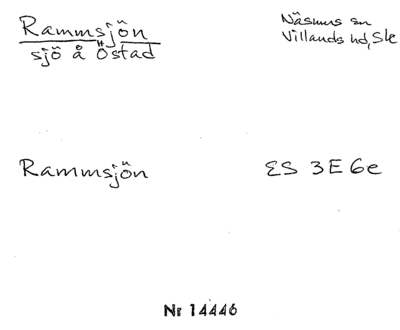 Rammsjön
sjö å Östad
Näsums sn
Villands hd, Ske
Rammsjön
ES 3E6e
Nr 14446